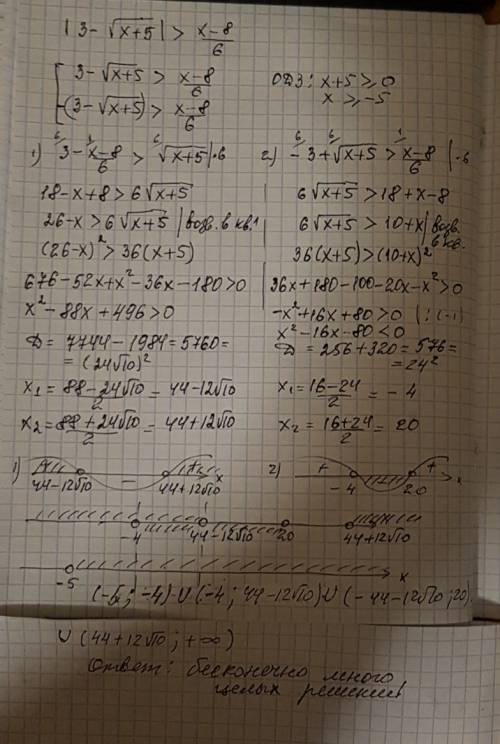 |3-√x+5| > x-8/6
3-√x+5 > x-8/6
-(3-√x+5) > x-8/6
ОДЗ: x+5≥0
x≥-5
1) 3 - x-8/6 > √x+5 |·6
18-x+8 > 6√x+5
26-x > 6√x+5 | возв. в кв.
(26-x)² > 36(x+5)
676-52x+x²-36x-180>0
x²-88x+496>0
D = 7744-1984=5760=
= (24√10)²
x₁ = 88-24√10/2 = 44-12√10
x₂ = 88+24√10/2 = 44+12√10
2) -3+√x+5 > x-8/6 |·6
6√x+5 > 18+x-8
6√x+5 > 10+x | возв.
в кв.
36(x+5)>(10+x)²
36x+180-100-20x-x²>0
-x²+16x+80>0 |:(-1)
x²-16x-80<0
D = 256+320=576=
=24²
x₁ = 16-24/2 = -4
x₂ = 16+24/2 = 20
1) + - + x
44-12√10 44+12√10
2) + - + x
-4 20
-4 44-12√10 20 44+12√10
-5 x
(-5; -4)∪(-4; 44-12√10)∪(-44-12√10; 20)
∪(44+12√10; +∞)
Ответ: бесконечно много
целых решений